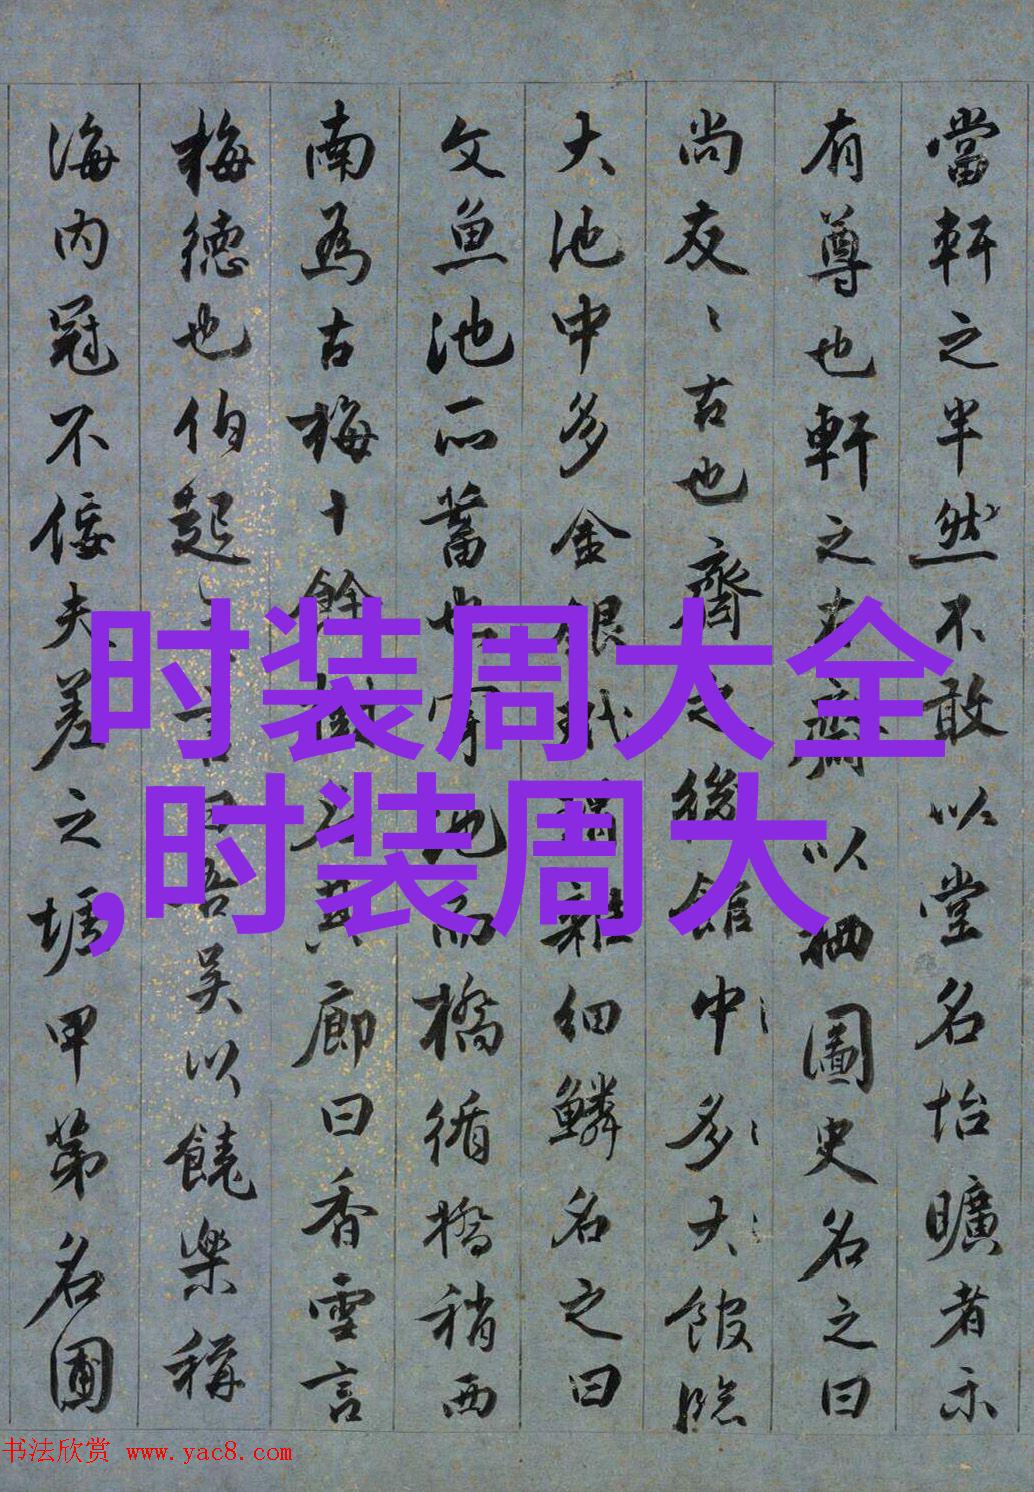 當軒之半然不敢以堂名怡曠者示
有尊也軒之 齋以栖圖史名之曰
尚友〻古也齋之後館中多大館臨
大池中多金銀 雜細鱗名之曰
文魚池所蓄也 池而橋循橋稍西
南為古梅十餘樹 廊曰香雪言
梅德也伯起 吾吴以饒樂稱
海内冠不佞夫差之墟甲第名圃
时装周大全
,时装周大
书法欣赏 www.yac8.com